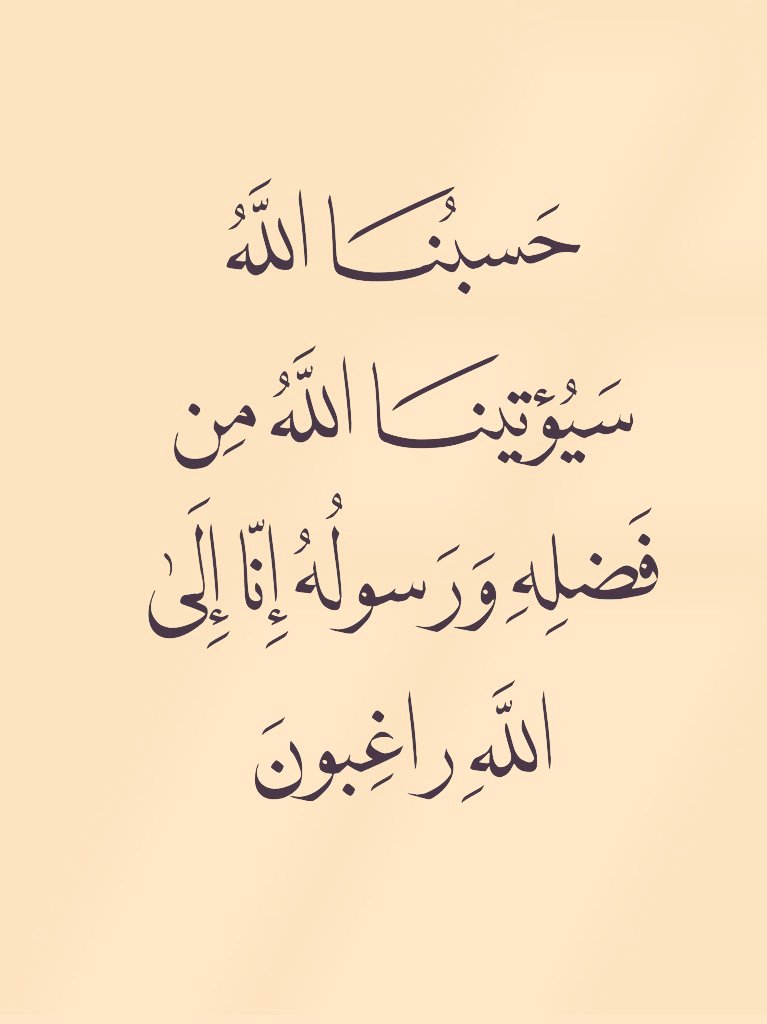 حَسبُنَا اللَّهُ
سَيُؤتينَا اللَّهُ مِن
فَضلِهِ وَرَسولُهُ إِنّا إِلَى
اللَّهِ راغِبونَ